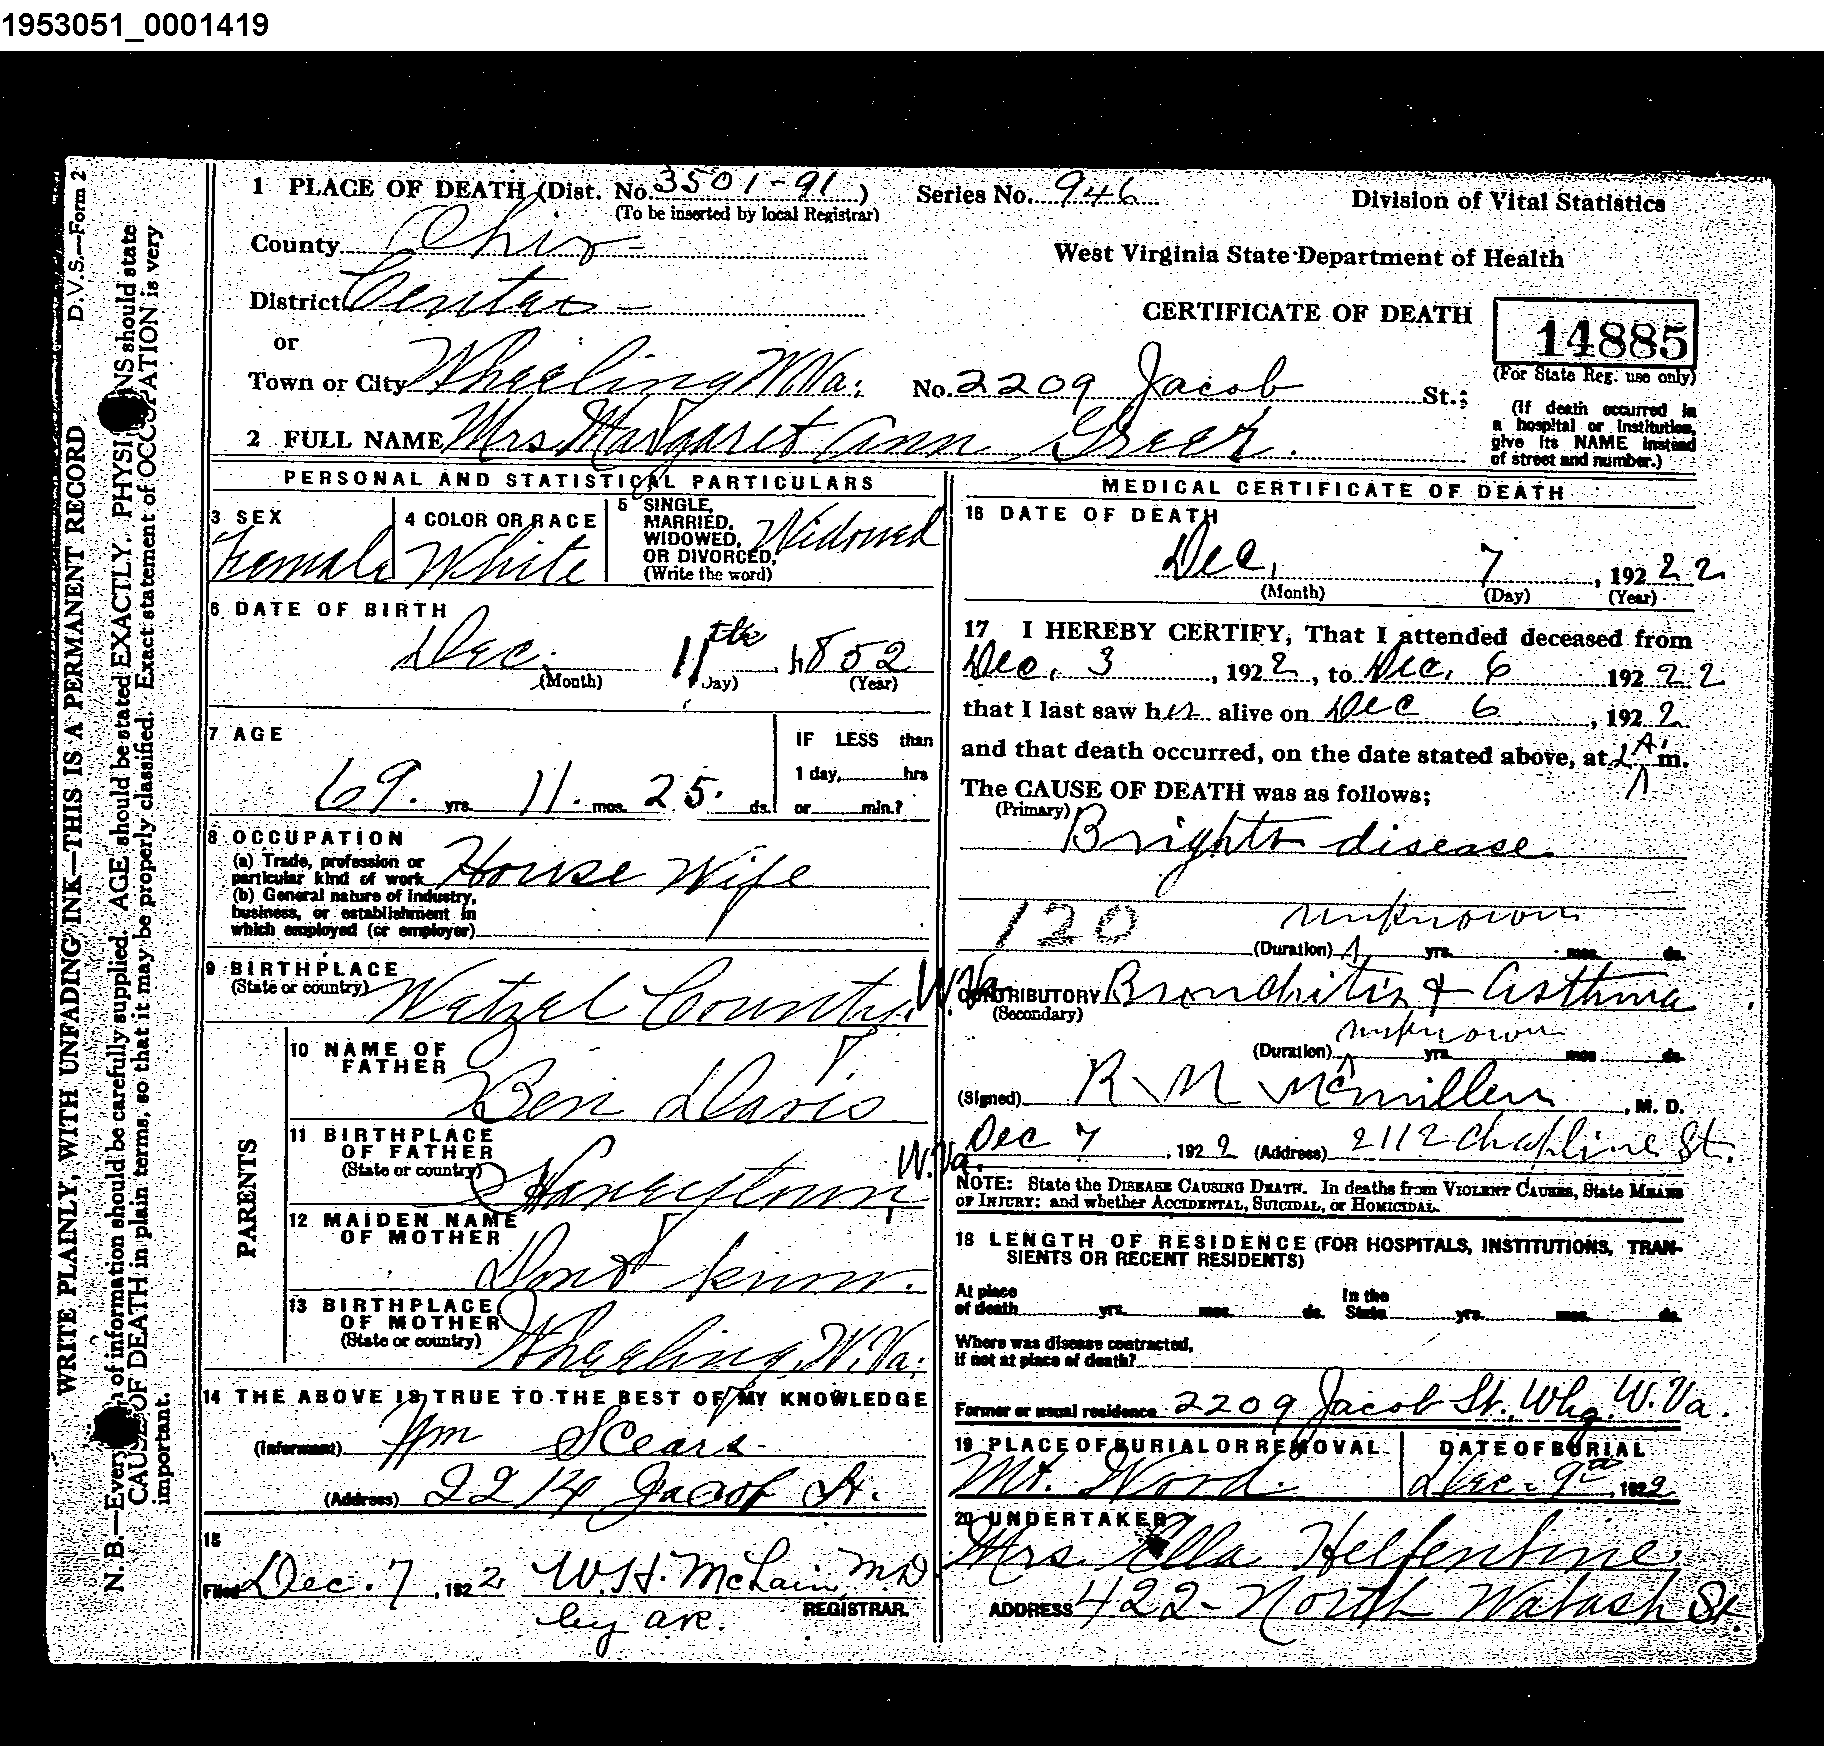 1953051_0001419
D.V.S.—Form 2
WRITE PLAINLY, WITH UNFADING INK—THIS IS A PERMANENT RECORD
N. B.—Every of information should be carefully supplied. AGE should be stated EXACTLY. PHYSI NS should state
CAUSE OF DEATH in plain terms, so that it may be properly classified. Exact statement of OCCUPATION is very
important.
1 PLACE OF DEATH (Dist. No. 3501-91) Series No. 946 Division of Vital Statistics
(To be inserted by local Registrar)
County Ohio
West Virginia State Department of Health
District Center
CERTIFICATE OF DEATH 14885
or
(For State Reg. use only)
Town or City Wheeling W.Va. No. 2209 Jacob St.;
(If death occurred in
a hospital or institution,
give its NAME instead
of street and number.)
2 FULL NAME Mrs Margaret Ann Greer.
PERSONAL AND STATISTICAL PARTICULARS
3 SEX
Female
4 COLOR OR RACE
White
5 SINGLE,
MARRIED,
WIDOWED,
OR DIVORCED,
(Write the word)
Widowed
6 DATE OF BIRTH
Dec. 11th 1852
(Month) (Day) (Year)
7 AGE
69. yrs. 11. mos. 25. ds.
IF LESS than
1 day, hrs
or min.?
8 OCCUPATION
(a) Trade, profession or
particular kind of work House Wife
(b) General nature of industry,
business, or establishment in
which employed (or employer)
9 BIRTHPLACE
(State or country) Wetzel County. W.Va
PARENTS
10 NAME OF
FATHER
Ben Davis
11 BIRTHPLACE
OF FATHER
(State or country) W.Va.
12 MAIDEN NAME
OF MOTHER
Dont know.
13 BIRTHPLACE
OF MOTHER
(State or country) Wheeling, W.Va.
14 THE ABOVE IS TRUE TO THE BEST OF MY KNOWLEDGE
(Informant) Wm Scears.
(Address) 2214 Jacob St.
15
Filed Dec. 7, 1922 W.H. McLain M.D
REGISTRAR.
by
MEDICAL CERTIFICATE OF DEATH
16 DATE OF DEATH
Dec, 7, 192 2 2
(Month) (Day) (Year)
17 I HEREBY CERTIFY, That I attended deceased from
Dec. 3, 192 2, to Dec. 6 192 2 2
that I last saw her alive on Dec 6, 192 2
and that death occurred, on the date stated above, at A. m.
The CAUSE OF DEATH was as follows;
(Primary) Brights disease
120 unknown
(Duration) yrs. mos. ds.
CONTRIBUTORY Bronchitis & Asthma
(Secondary)
unknown
(Duration) yrs. mos. ds.
(Signed) R M McMillen, M. D.
Dec 7, 192 2 (Address) 2112 Chapline St.
NOTE: State the DISEASE CAUSING DEATH. In deaths from VIOLENT CAUSES, State MEANS
OF INJURY; and whether ACCIDENTAL, SUICIDAL, or HOMICIDAL.
18 LENGTH OF RESIDENCE (FOR HOSPITALS, INSTITUTIONS, TRAN-
SIENTS OR RECENT RESIDENTS)
At place
of death yrs. mos. ds.
In the
State yrs. mos. ds.
Where was disease contracted,
if not at place of death?
Former or usual residence 2209 Jacob St. Whg. W.Va.
19 PLACE OF BURIAL OR REMOVAL
Mt. Wood.
DATE OF BURIAL
Dec. 9th 1922
20 UNDERTAKER
Mrs. Ella Helfenbine
ADDRESS 422-North Wabash St.